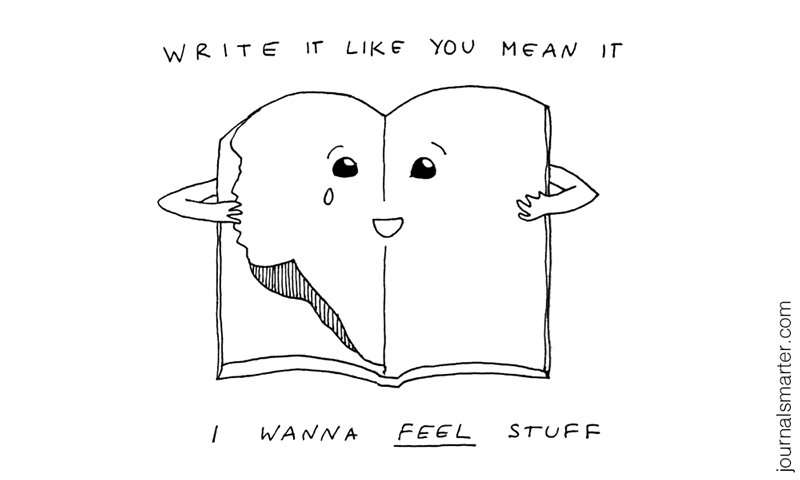 WRITE IT LIKE YOU MEAN IT
I WANNA FEEL STUFF
journalsmarter.com